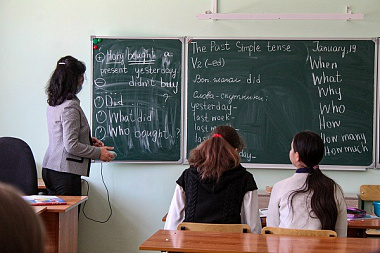 ⊕ Mary bought a
present yesterday.
⊖ didn't buy
? Did ?
What did
Who bought ?
The Past Simple tense January, 19
V2 (-ed)
Вспом. глагол did
Слова-спутники:
yesterday-
last week-
last
last
yesterday-
When
What
Why
Who
How
How many
How much